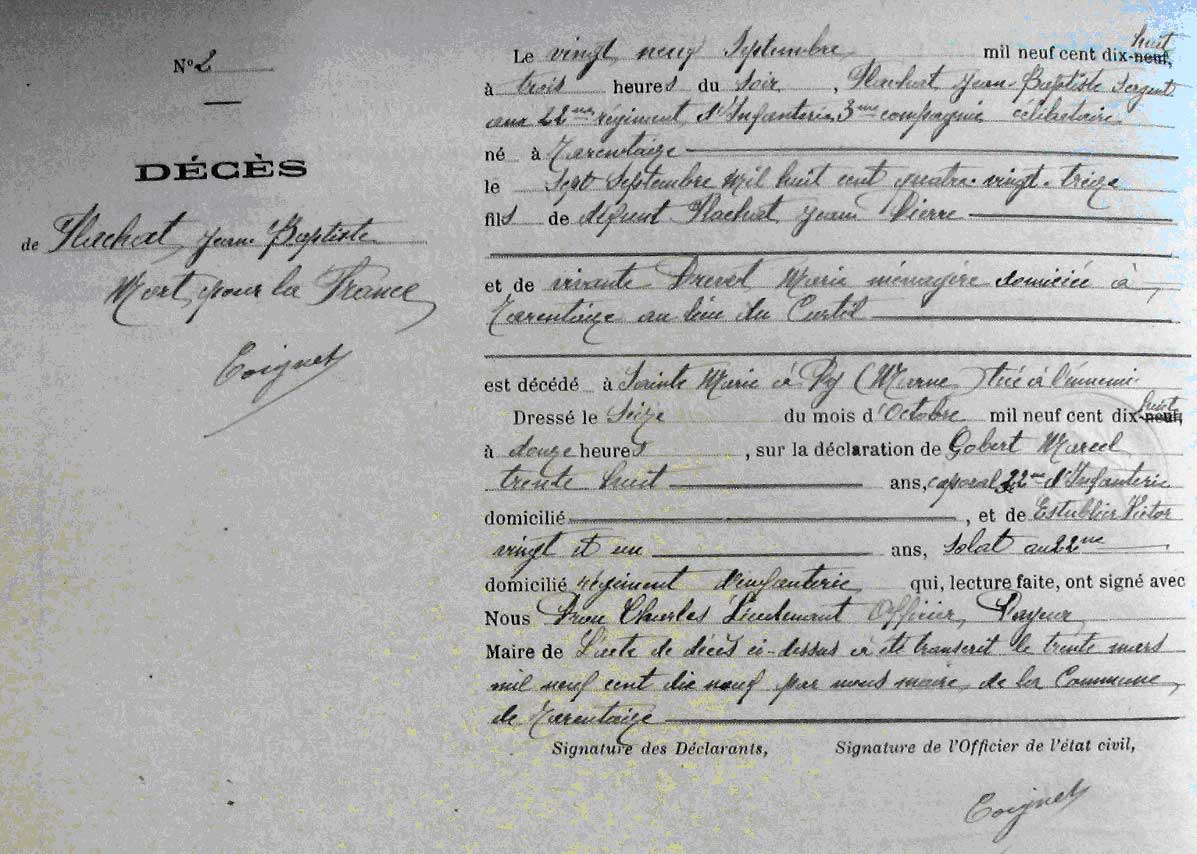 N° 2
DÉCÈS
de Flachat Jean Baptiste
Mort pour la France
Coignet
Le vingt neuf Septembre mil neuf cent dix-neuf, huit
à trois heures du soir, Flachat Jean-Baptiste Sergent
aux 22me régiment d'Infanterie 3me compagnie célibataire
né à Tarentaize
le Sept Septembre mil huit cent quatre-vingt-treize
fils de défunt Flachat Jean Pierre
et de vivante Drevet Marie ménagère domiciée à
Tarentaize au lieu du Curtil
est décédé à Sainte Marie à Py (Marne) tué à l'ennemi
Dressé le Seize du mois d'Octobre mil neuf cent dix-neuf, huit
à douze heures, sur la déclaration de Gobert Marcel
trente huit ans, caporal 22me d'Infanterie
domicilié, et de Estublier Victor
vingt et un ans, Solat au 22me
domicilié régiment d'infanterie qui, lecture faite, ont signé avec
Nous Charles Lieutenant Officier Payeur
Maire de L'acte de décès ci-dessus a été transcrit le trente mars
mil neuf cent dix neuf par nous maire de la Commune
de Tarentaize
Signature des Déclarants, Signature de l'Officier de l'état civil,
Coignet